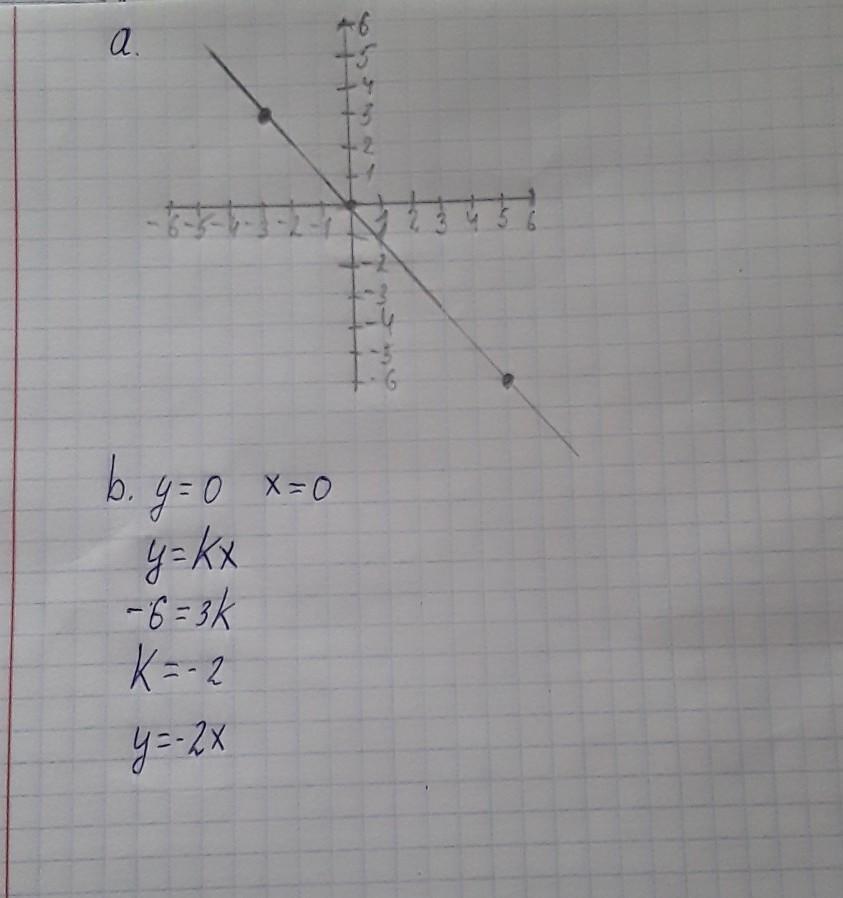 a.
6
5
4
3
2
1
-6 -5 -4 -3 -2 -1 1 2 3 4 5 6
-2
-3
-4
-5
-6
b. y=0 x=0
y=kx
-6=3k
k=-2
y=-2x